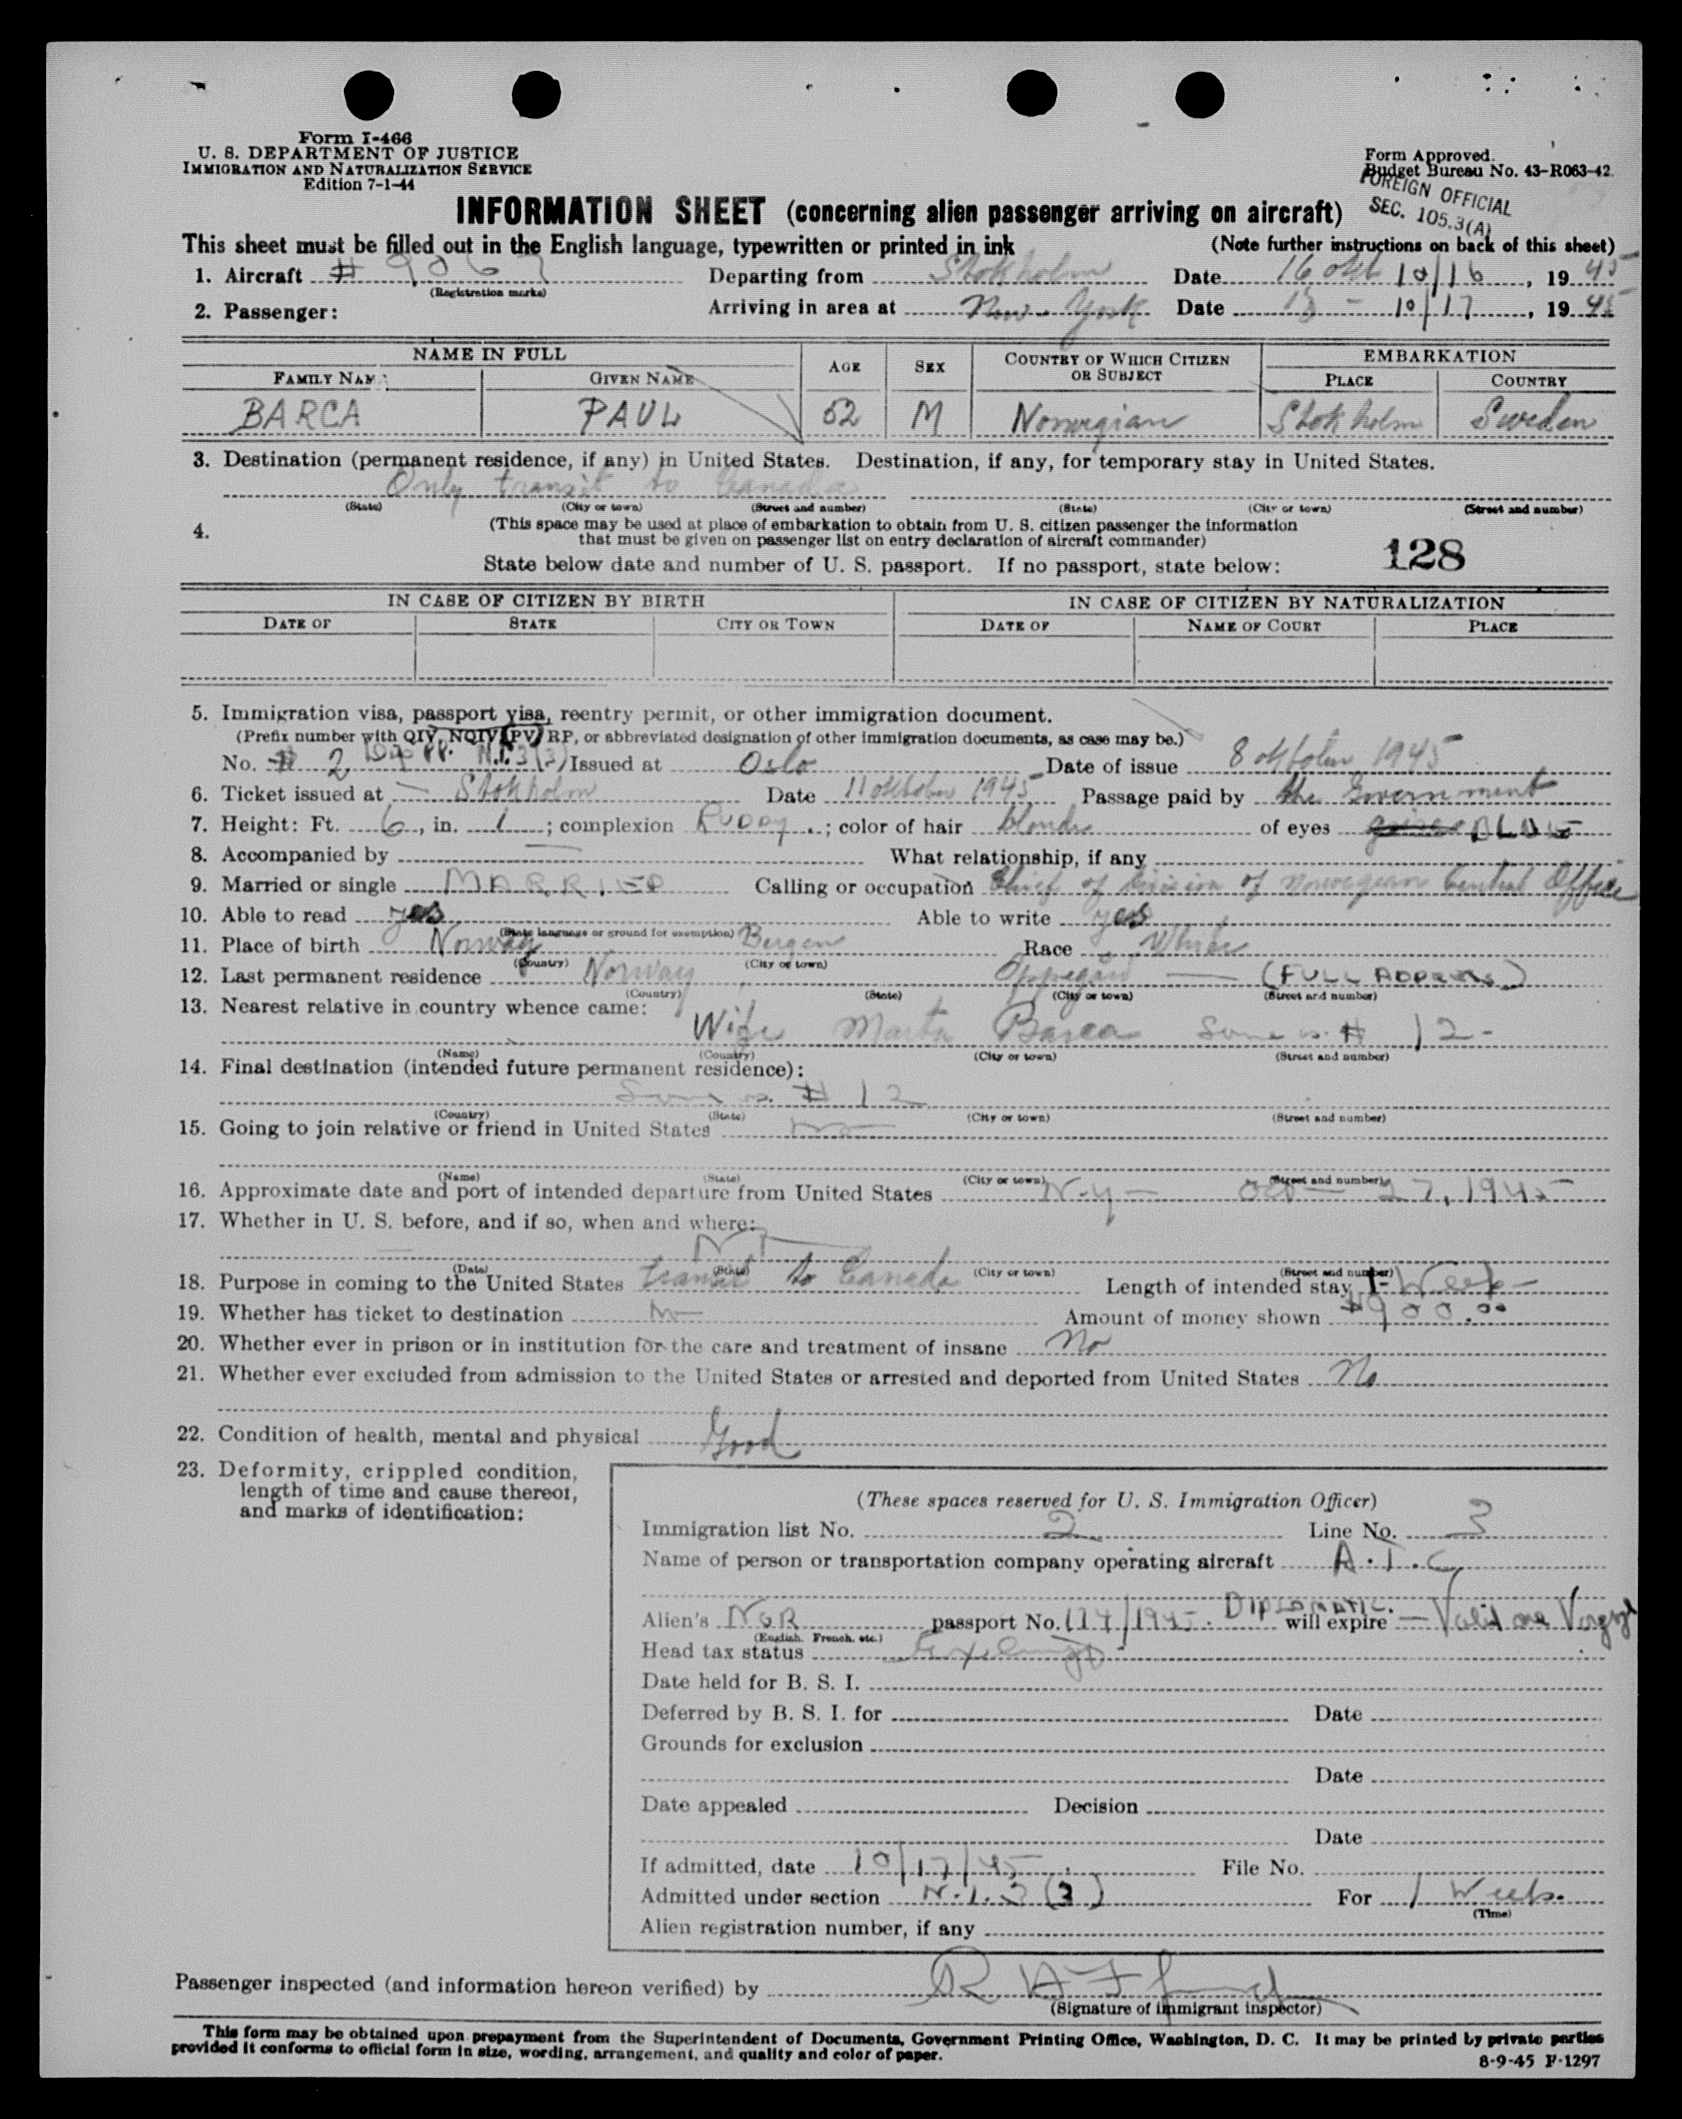 Form I-466
U. S. DEPARTMENT OF JUSTICE
IMMIGRATION AND NATURALIZATION SERVICE
Edition 7-1-44
Form Approved.
Budget Bureau No. 43-R063-42.
FOREIGN OFFICIAL
SEC. 105.3(A)
INFORMATION SHEET (concerning alien passenger arriving on aircraft)
This sheet must be filled out in the English language, typewritten or printed in ink (Note further instructions on back of this sheet)
1. Aircraft # 9067 Departing from Stokholm Date 16 okt 10/16, 1945
(Registration marks)
2. Passenger: Arriving in area at New York Date 10/17, 1945
NAME IN FULL AGE SEX COUNTRY OF WHICH CITIZEN OR SUBJECT EMBARKATION
FAMILY NAME GIVEN NAME PLACE COUNTRY
BARCA PAUL 52 M Norwegian Stokholm Sweden
3. Destination (permanent residence, if any) in United States. Destination, if any, for temporary stay in United States.
Only transit to Canada
(State) (City or town) (Street and number) (State) (City or town) (Street and number)
4. (This space may be used at place of embarkation to obtain from U. S. citizen passenger the information
that must be given on passenger list on entry declaration of aircraft commander)
128
State below date and number of U. S. passport. If no passport, state below:
IN CASE OF CITIZEN BY BIRTH IN CASE OF CITIZEN BY NATURALIZATION
DATE OF STATE CITY OR TOWN DATE OF NAME OF COURT PLACE
5. Immigration visa, passport visa, reentry permit, or other immigration document.
(Prefix number with QIV, NQIV, PV, RP, or abbreviated designation of other immigration documents, as case may be.)
No. # 2 Dip PP. N.I. 3(3) Issued at Oslo Date of issue 8 oktober 1945
6. Ticket issued at Stokholm Date 11 oktober 1945 Passage paid by the Government
7. Height: Ft. 6, in. 1; complexion RUDDY; color of hair blonde of eyes BLUE
8. Accompanied by — What relationship, if any
9. Married or single MARRIED Calling or occupation Chief of division of Norwegian Central Office
10. Able to read yes Able to write yes
(State language or ground for exemption)
11. Place of birth Norway Bergen Race White
(Country) (City or town)
12. Last permanent residence Norway Oppegård — (FULL ADDRESS)
(Country) (State) (City or town) (Street and number)
13. Nearest relative in country whence came:
Wife Marta Barca Same as # 12-
(Name) (Country) (City or town) (Street and number)
14. Final destination (intended future permanent residence):
Same as # 12
(Country) (State) (City or town) (Street and number)
15. Going to join relative or friend in United States no
(Name) (State) (City or town) (Street and number)
16. Approximate date and port of intended departure from United States N.Y. — Oct — 27, 1945
17. Whether in U. S. before, and if so, when and where:
(Date) (State) (City or town) (Street and number)
18. Purpose in coming to the United States transit to Canada Length of intended stay 1- Week-
19. Whether has ticket to destination no Amount of money shown $900.00
20. Whether ever in prison or in institution for the care and treatment of insane No
21. Whether ever excluded from admission to the United States or arrested and deported from United States No
22. Condition of health, mental and physical Good
23. Deformity, crippled condition,
length of time and cause thereof,
and marks of identification:
(These spaces reserved for U. S. Immigration Officer)
Immigration list No. 2 Line No. 3
Name of person or transportation company operating aircraft A.T.C
Alien's NOR passport No. 174/1945. DIPLOMATIC. will expire — Valid one
(English, French, etc.)
Head tax status Exempt
Date held for B. S. I.
Deferred by B. S. I. for Date
Grounds for exclusion
Date
Date appealed Decision
Date
If admitted, date 10/17/45 File No.
Admitted under section N.I. 3 (3) For 1 Week.
(Time)
Alien registration number, if any
Passenger inspected (and information hereon verified) by
(Signature of immigrant inspector)
This form may be obtained upon prepayment from the Superintendent of Documents, Government Printing Office, Washington, D. C. It may be printed by private parties
provided it conforms to official form in size, wording, arrangement, and quality and color of paper.
8-9-45 F-1297